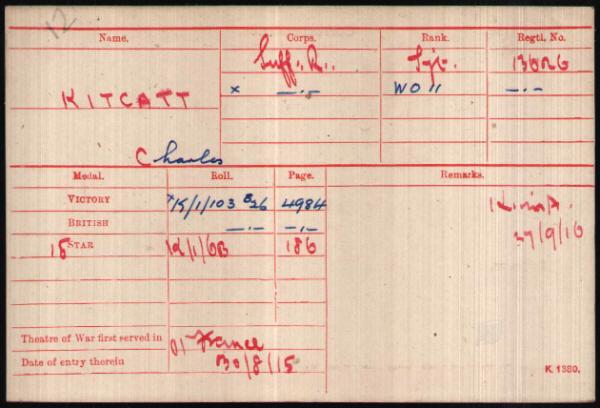 12
Name. Corps. Rank. Regtl. No.
Suff. R. Sjt. 13626
KITCATT x —·— WO II —·—
Charles
Medal. Roll. Page. Remarks.
VICTORY x K/1/103 B26 4984 K. in A.
BRITISH —·— —·— 27/9/16
15 STAR K/1/6B 186
Theatre of War first served in (1) France
Date of entry therein 30/8/15
K. 1380.